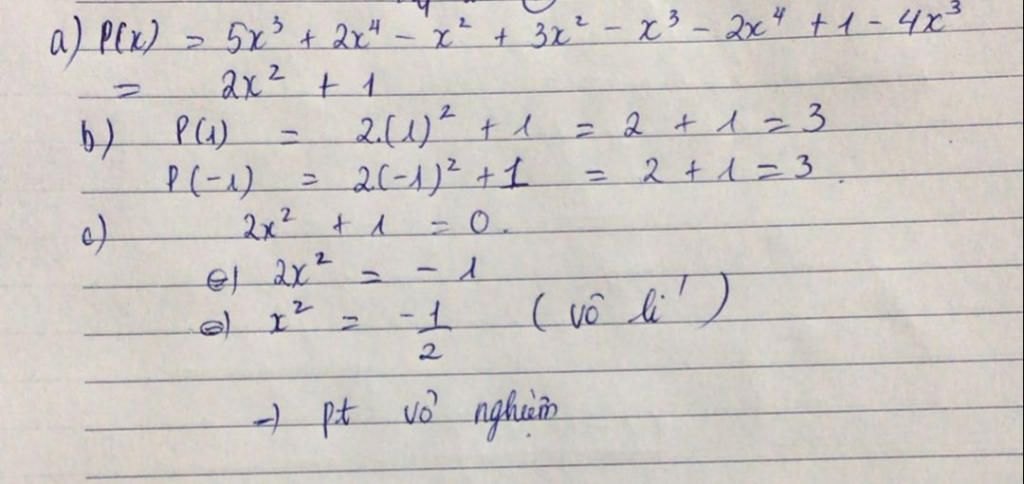 a) P(x) = 5x³ + 2x⁴ - x² + 3x² - x³ - 2x⁴ + 1 - 4x³
= 2x² + 1
b) P(1) = 2.(1)² + 1 = 2 + 1 = 3
P(-1) = 2(-1)² + 1 = 2 + 1 = 3.
c) 2x² + 1 = 0.
⇔ 2x² = - 1
⇔ x² = -1/2 (vô lí)
→ pt vô nghiệm